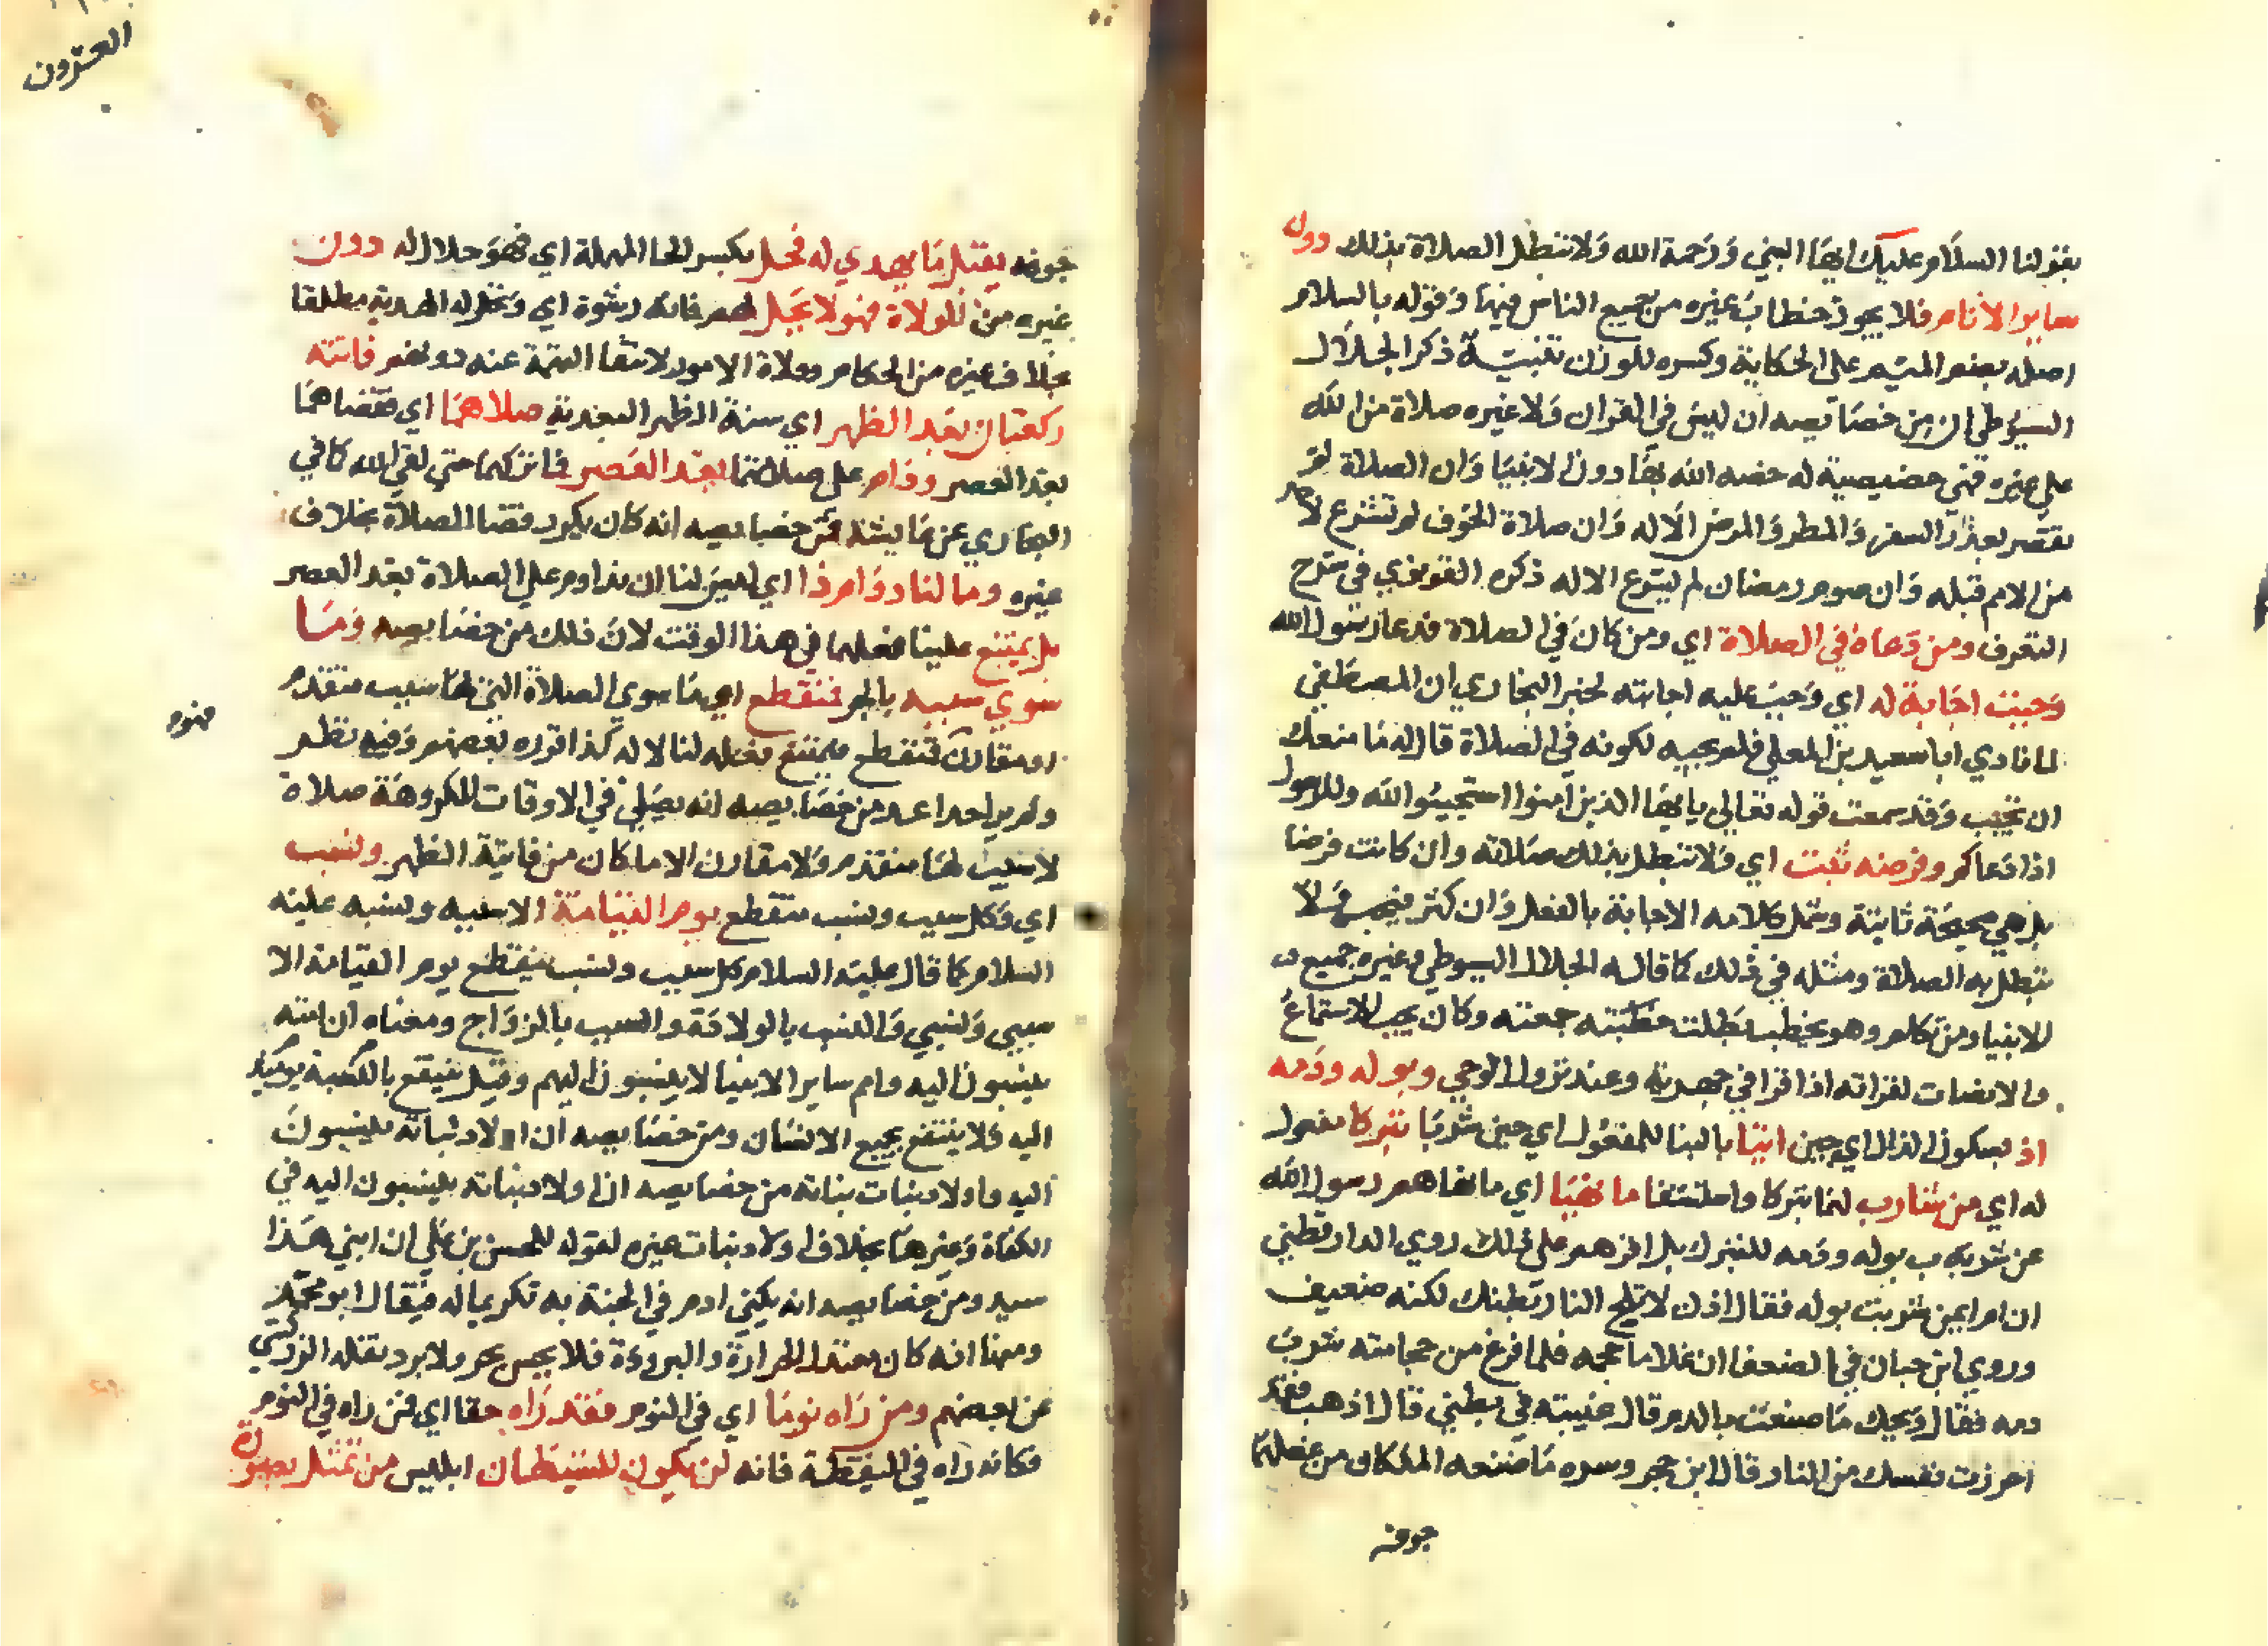 بقولنا السلام عليك ايها النبي ورحمة الله ولا تبطل الصلاة بذلك دون
ساير الانام فلا يجوز خطاب غيره من جميع الناس فيها وقوله بالسلام
اصله بضم الميم على الحكاية وكسره للوزن تنبيه ذكر الجلال
السيوطي ان من خصايصه ان ليس في القران ولا غيره صلاة من الله
على غيره فهي خصيصية له خصه الله بها دون الانبيا وان الصلاة لم
تقصر بعذر السفر والمطر والمرض الا له وان صلاة الخوف لم تشرع لاحد
من الامم قبله وان صوم رمضان لم يشرع الا له ذكره القونوي في شرح
التعرف ومن دعاه في الصلاة اي ومن كان في الصلاة فدعا رسول الله
وجبت اجابة له اي وجبت عليه اجابته لخبر البخاري ان المصطفي
لما نادي ابا سعيد بن المعلي فلم يجبه لكونه في الصلاة قال له ما منعك
ان تجيب وقد سمعت قوله تعالى يا ايها الذين امنوا استجيبوا لله وللرسول
اذا دعاكم وفرضه ثبت اي ولا تبطل بذلك صلاته وان كانت فرضا
بل هي صحيحة ثابتة وشمل كلامه الاجابة بالفعل وان كثر فيجب ولا
تبطل به الصلاة ومثله في ذلك كما قاله الجلال السيوطي وغيره جميع
الانبيا ومن تكلم وهو يخطب بطلت جمعته وكان يجب الاستماع
والانصات لقراته اذا قرا في جهرية وعند نزول الوحي وبوله ودمه
اذ بسكون الذال اي حين اتيا بالبنا للمفعول اي حين شربا تبركا مفعول
له اي من شارب لهما تبركا واستشفا ما نهيا اي ما نهاهم رسول الله
عن شربه بوله ودمه للتبرك بل اقرهم على ذلك روي الدارقطني
ان ام ايمن شربت بوله فقال اذن لا تلج النار بطنك لكنه ضعيف
وروي ابن حبان في الضعفا ان غلاما حجمه فلما فرغ من حجامته شرب
دمه فقال ويحك ما صنعت بالدم قال غيبته في بطني قال اذهب فقد
احرزت نفسك من النار قال ابن حجر وسره ما صنعه الملكان من غسلهما
جوفه
العشرون
جوفه يقبل ما يهدي له فحل بكسر الحا المهملة اي فهو حلال له دون
غيره من الولاة فهو لا يحل لهم فانه رشوة اي وتحل له الهدية مطلقا
بخلاف غيره من الحكام وولاة الامور لانتفا التهمة عنه دونهم فاتته
ركعتان بعد الظهر اي سنة الظهر البعدية صلاهما اي قضاهما
بعد العصر ودام على صلاتهما بعد العصر فما تركهما حتى لقي الله كما في
البخاري عن عايشة فمن خصايصه انه كان يكرر قضا الصلاة بخلاف
غيره وما لنا دوام ذا اي ليس لنا ان نداوم على الصلاة بعد العصر
بل يمتنع علينا فعلها في هذا الوقت لان ذلك من خصايصه وما
سوي سببه بالجر فتنقطع اي ما سوي الصلاة التي لها سبب متقدم
او مقارن فتنقطع فيمتنع فعله لنا لا له كذا قرره بعضهم وفيه نظر
ولم ير احدا عد من خصايصه انه يصلي في الاوقات المكروهة صلاة
لا سبب لها متقدم ولا مقارن الا ما كان من فايتة الظهر ونسب
اي وكل سبب ونسب منقطع يوم القيامة الا سببه ونسبه عليه
السلام كما قال عليه السلام كل سبب ونسب ينقطع يوم القيامة الا
سببي ونسبي والنسب بالولادة والسبب بالزواج ومعناه ان امته
ينسبون اليه وامم ساير الانبيا لا ينسبون اليهم وقيل ينتفع بالنسبة يوميذ
اليه ولا ينتفع بجميع الانساب ومن خصايصه ان اولاد بناته ينسبون
اليه واولاد بنات بناته من خصايصه ان اولاد بناته ينسبون اليه في
الكفاة وغيرها بخلاف اولاد بنات غيره لقوله للحسن بن علي ان ابني هذا
سيد ومن خصايصه انه يكني ادم في الجنة به تكريما له فيقال ابو محمد
ومنها انه كان معتدل الحرارة والبرودة فلا يحس بحر ولا برد نقله الزركشي
عن بعضهم ومن راه نوما اي في النوم فقد راه حقا اي فمن راه في النوم
فكانه راه في اليقظة فانه لن يكون للشيطان ابليس من تمثل بصورة